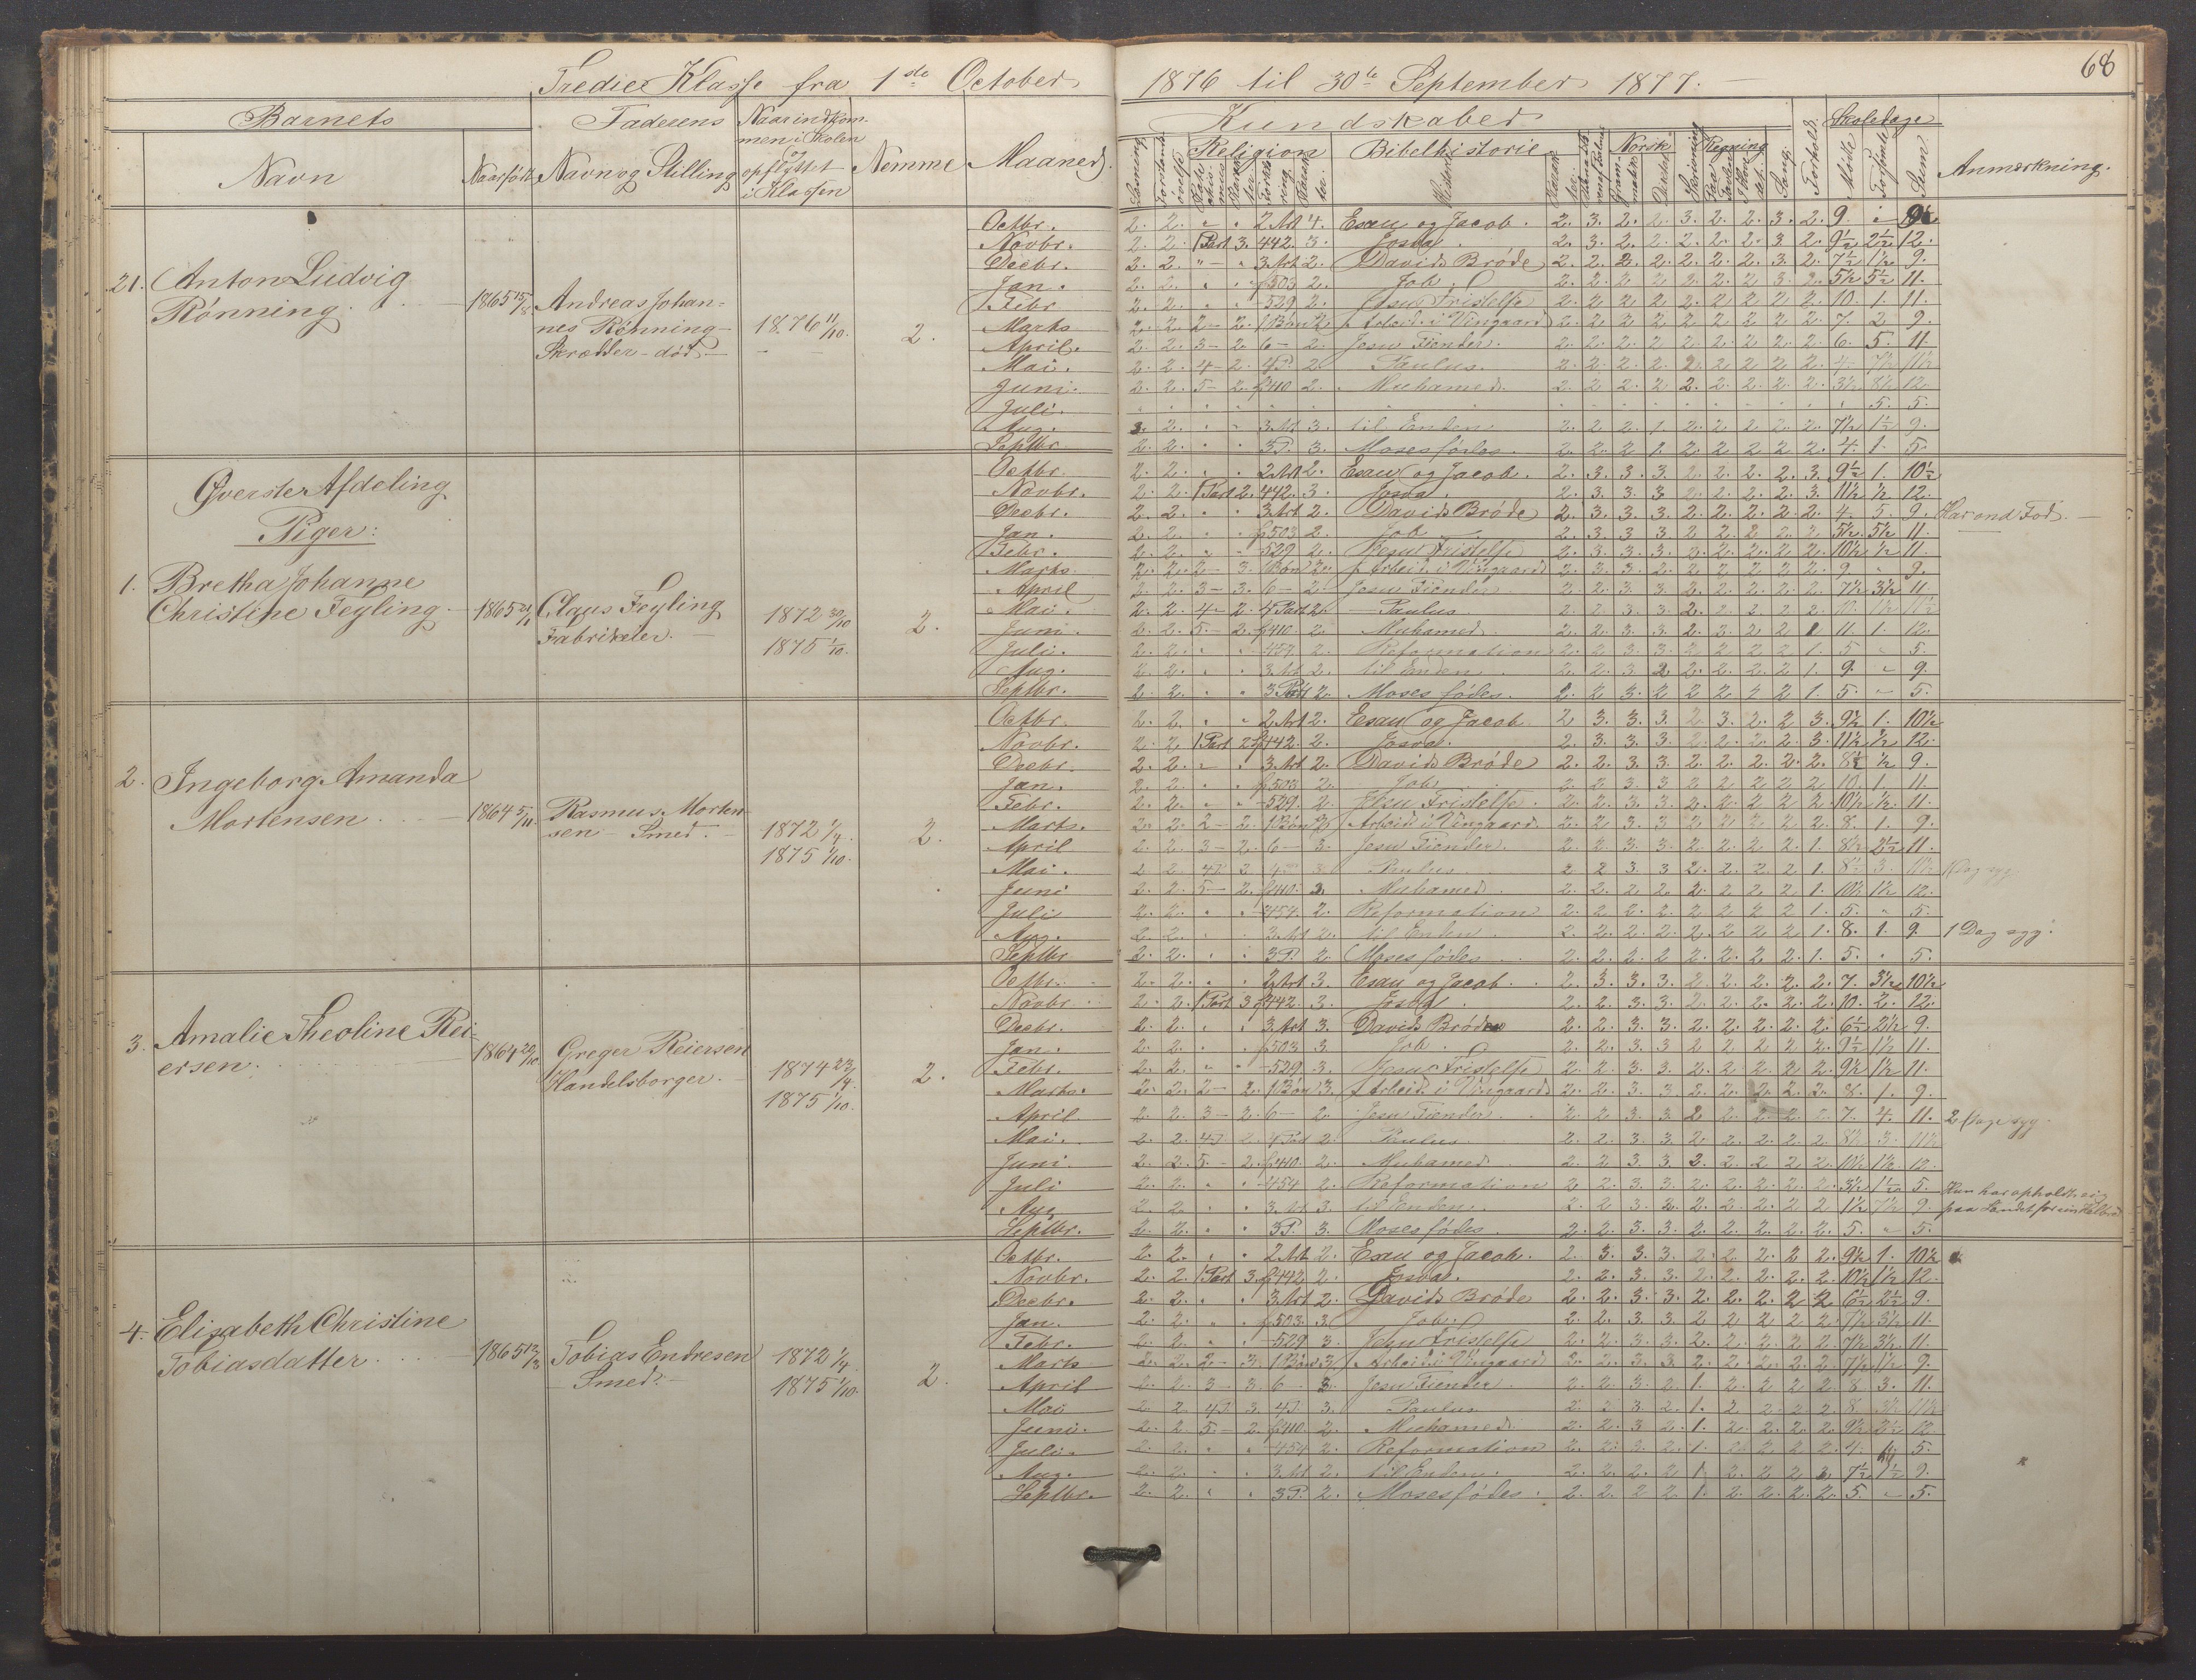 68
Tredie Klasse fra 1ste October 1876 til 30te September 1877.
Barnets
Faderens
Naar indkommen i Skolen og opflyttet i Klassen
Nemme
Maaned.
Navn
Naar født
Navn og Stilling
Kundskaber
Religion
Bibelhistorie
Norsk
Regning
Sang.
Forhold.
Skoledage
Mødte
Forsømte
Sum
Anmærkning.
21. Anton Ludvig
Rønning.
1865 15/8
Andreas Johannes Rønning
Skrædder - død
1876 11/10.
2.
Octbr. 2. 2. 2 Art 4. Esau og Jacob. 2. 3. 2. 2. 3. 2. 2. 3. 2. 9.
Novbr. 2. 2. 1 Part 3. 442. 3. Josva. 2. 3. 2. 2. 2. 2. 2. 3. 2. 9½ 2½ 12.
Decbr. 2. 2. 3 Art 2. Davids Brøde 2. 2. 2. 2. 2. 2. 2. 3. 2. 7½ 1½ 9.
Jan. 2. 2. 503 2. Job. 2. 2. 2. 2. 2. 2. 2. 3. 2. 5½ 5½ 11.
Febr. 2. 2. 529 2. Jesu Fristelse 2. 2. 2. 2. 2. 2. 2. 2. 2. 10. 1. 11.
Marts 2. 2. 2 - 2. 1 Bøn 2. Arbeid. i Vingaard 2. 2. 2. 2. 2. 2. 2. 2. 2. 7. 2. 9.
April. 2. 2. 3 - 2. 6 - 2. Jesu Fiender. 2. 2. 2. 2. 2. 2. 2. 2. 2. 6. 5. 11.
Mai. 2. 2. 4 - 2. 4 P. 2. Paulus. 2. 2. 2. 2. 2. 2. 2. 2. 2. 4. 7½ 11½
Juni. 2. 2. 5 - 2. 410 2. Muhamed. 2. 2. 2. 2. 2. 2. 2. 2. 2. 3½ 8½ 12
Juli. 5. 5.
Aug. 2. 2. 3 Art 3. til Enden. 2. 2. 2. 1. 2. 2. 2. 2. 2. 7½ 1½ 9.
Septbr. 2. 2. 3 P. 3. Moses fødes. 2. 2. 2. 1. 2. 2. 2. 2. 2. 4. 1. 5.
Øverste Afdeling
Piger:
1. Bretha Johanne
Christine Feyling.
1865
Claus Feyling
Fabrikeier.
1872 30/10
1875 1/10.
2.
Octbr. 2. 2. 2 Art 2. Esau og Jacob. 2. 3. 3. 3. 2. 2. 2. 2. 3. 9½ 1. 10½
Novbr. 2. 2. 1 Part 2. 442. 3. Josva. 2. 3. 3. 3. 2. 2. 2. 2. 3. 11½ ½ 12.
Decbr. 2. 2. 3 Art 2. Davids Brøde 2. 3. 3. 3. 2. 2. 2. 2. 2. 4. 5. 9. Har ond Fod.
Jan. 2. 2. 503 2. Job 2. 3. 3. 3. 2. 2. 2. 2. 2. 5½ 5½ 11.
Febr. 2. 2. 529 2. Jesu Fristelse 2. 3. 3. 3. 2. 2. 2. 2. 2. 10½ ½ 11.
Marts 2. 2. 2 - 3. 1 Bøn 2. Arbeid. i Vingaard 2. 3. 3. 2. 2. 2. 2. 2. 2. 9 9.
April 2. 2. 3 - 3. 6 - 2. Jesu Fiender. 2. 2. 3. 3. 2. 2. 2. 2. 2. 7½ 3½ 11.
Mai. 2. 2. 4 - 2. 4 Part 2. Paulus 2. 2. 3. 3. 2. 2. 2. 2. 2. 10. 1½ 11½
Juni. 2. 2. 5. - 2. 410. 2. Muhamed. 2. 2. 3. 3. 2. 2. 2. 2. 11. 1. 12.
Juli. 2. 2. 454 2. Reformation 2. 2. 3. 3. 2. 2. 2. 2. 1. 5 5.
Aug. 2. 2. 3 Art 2. til Enden. 2. 2. 3. 2. 2. 2. 2. 2. 1. 9. 9.
Septbr. 2. 2. 3 Part 2. Moses fødes. 2. 2. 3. 2. 2. 2. 2. 2. 1. 5. 5.
2. Ingeborg Amanda
Mortensen.
1864 5/11
Rasmus Mortensen - Smed.
1872 1/4.
1875 1/10.
2.
Octbr. 2. 2. 2 Art 2. Esau og Jacob 2 3. 3. 3. 2. 3. 2. 2 3. 9½ 1. 10½
Novbr. 2. 2. 1 Part 2 442. 2. Josva. 2. 3. 3. 3. 2. 2. 2. 2. 3. 11½ ½ 12.
Decbr. 2. 2. 3 Art 2. Davids Brøde 2. 2. 3. 3. 2. 2. 2. 2. 2. 8½ ½ 9.
Jan. 2. 2. 503 2. Job 2. 2. 3. 3. 2. 2. 2. 2. 2. 10. 1. 11.
Febr. 2. 2. 529. 2. Jesu Fristelse. 2. 2. 3. 3. 2. 2. 2. 2. 2. 10½ ½ 11.
Marts. 2. 2. 2 - 2. 1 Bøn 2. Arbeid. i Vingaard. 2. 2. 3. 3. 2. 2. 2. 2. 2. 8. 1. 9.
April 2. 2. 3 - 2. 6 - 3. Jesu Fiender. 2. 2. 3. 3. 2. 2. 2. 2. 1. 8½ 2½ 11.
Mai. 2. 2. 4 P. 2. 4 P. 3. Paulus 2. 2. 3. 3. 2. 2. 2. 2. 1. 8½ 3. 11½ 1 Dag syg.
Juni 2. 2. 5 - 2. 410. 3. Muhamed. 2. 2. 2. 2. 2. 2. 2. 2. 1. 10½ 1½ 12.
Juli 2. 2. 454. 2. Reformation 2. 2. 2. 2. 2. 2. 2. 2. 1. 5. 5.
Aug. 2. 2. 3 Art 2. til Enden. 2. 2. 2. 2. 2. 2. 2. 2. 1. 8. 1. 9. 1 Dag syg.
Septbr 2. 2. 3 P. 2. Moses fødes. 2. 2. 2. 2. 2. 2. 2. 2. 1. 5. 5.
3. Amalie Theoline Reiersen.
1864 20/10
Greger Reiersen
Handelsborger.
1874 23/4.
1875 1/10.
2.
Octbr. 2. 2. 2 Art 3. Esau og Jacob. 2. 3. 3. 3. 2. 2. 2. 2. 2. 7. 3½ 10½
Novbr. 2. 2. 1 Part 3 442. 3. Josva. 2. 2. 3. 3. 2. 2. 2. 2. 2. 10. 2. 12.
Decbr. 2. 2. 3 Art 3. Davids Brøde 2. 2. 3. 3. 2. 2. 2. 2. 2. 6½ 2½ 9.
Jan. 2. 2. 503 3. Job. 2. 2. 3. 3. 2. 2. 2. 2. 2. 9½ 1½ 11.
Febr. 2. 2. 529 3. Jesu Fristelse 2. 2. 3. 3. 2. 2. 2. 2. 2. 9½ 1½ 11.
Marts. 2. 2. 2 - 2. 1 Bøn 3. Arbeid. i Vingaard 2. 2. 3. 3. 2. 2. 2. 2. 2. 8. 1. 9.
April 2. 2. 3 - 2. 6 - 2. Jesu Fiender. 2. 2. 3. 3. 2. 2. 2. 2. 2. 7. 4. 11. 2 Dage syg.
Mai. 2. 2. 4 P. 2. 4 Part 2. Paulus. 2. 2. 3. 3. 2. 2. 2. 2. 2. 8½ 3. 11½
Juni. 2. 2. 5. - 2. 410. 2. Muhamed. 2. 2. 3. 3. 2. 2. 2. 2. 2. 10½ 1½ 12.
Juli 2. 2. 454 2. Reformation 2. 2. 3. 3. 2. 2. 2. 2. 2. 3½ 1½ 5.
Hun har opholdt sig
paa Landet for sin Helbred
Aug. 2. 2. 3 Art 3. til Enden. 2. 2. 3. 2. 2. 2. 2. 2. 2. 1½ 7½ 9.
Septbr. 2. 2. 3 P. 3. Moses fødes 2. 2. 3. 3. 2. 2. 2. 2. 2. 5. 5.
4. Elisabeth Christine
Tobiasdatter.
1865 12/3
Tobias Endresen
Smed.
1872 1/4.
1875 1/10.
2.
Octbr. 2. 2. 2 Art 2. Esau og Jacob. 2. 3. 3. 3. 2. 2. 2. 2. 2. 9½ 1. 10½
Novbr. 2. 2. 1 Part 3. 442 2. Josva. 2. 2. 3. 3. 2. 2. 2. 2. 2. 10½ 1½ 12.
Decbr. 2. 2. 3 Art 2. Davids Brøde 2. 2. 3. 3. 2. 2. 2. 2. 2. 6½ 2½ 9.
Jan. 2. 2. 503. 3. Job. 2. 2. 3. 3. 2. 2. 2. 2. 2. 7½ 3½ 11.
Febr. 2. 2. 529 3. Jesu Fristelse 2. 2. 3. 3. 2. 2. 2. 2. 2. 7½ 3½ 11.
Marts 2. 2. 2 - 3. 1 Bøn 3. Arbeid. i Vingaard 2. 2. 3. 3. 2. 2. 2. 2. 2. 7½ 1½ 9.
April 2. 2. 3 - 3. 6 - 3. Jesu Fiender. 2. 2. 3. 2. 1. 2. 2. 2. 2. 8. 3. 11.
Mai 2. 2. 4 P. 3. 4 P. 3. Paulus 2. 2. 3. 2. 1. 2. 2. 2. 2. 8. 3½ 11½
Juni. 2. 2. 5. - 2. 410. 2. Muhamed. 2. 2. 3. 2. 1. 2. 2. 2. 2. 9½ 2½ 12.
Juli. 2. 2. 454 2. Reformation 2. 2. 2. 2. 1. 2. 2. 2. 2. 4. 5.
Aug. 2. 2. 3 Art 2. til Enden. 2. 2. 2. 2. 1. 2. 2. 2. 2. 7½ 1½ 9.
Septbr. 2. 2. 3 P. 2. Moses fødes. 2. 2. 2. 2. 1. 2. 2. 2. 2. 5. 5.